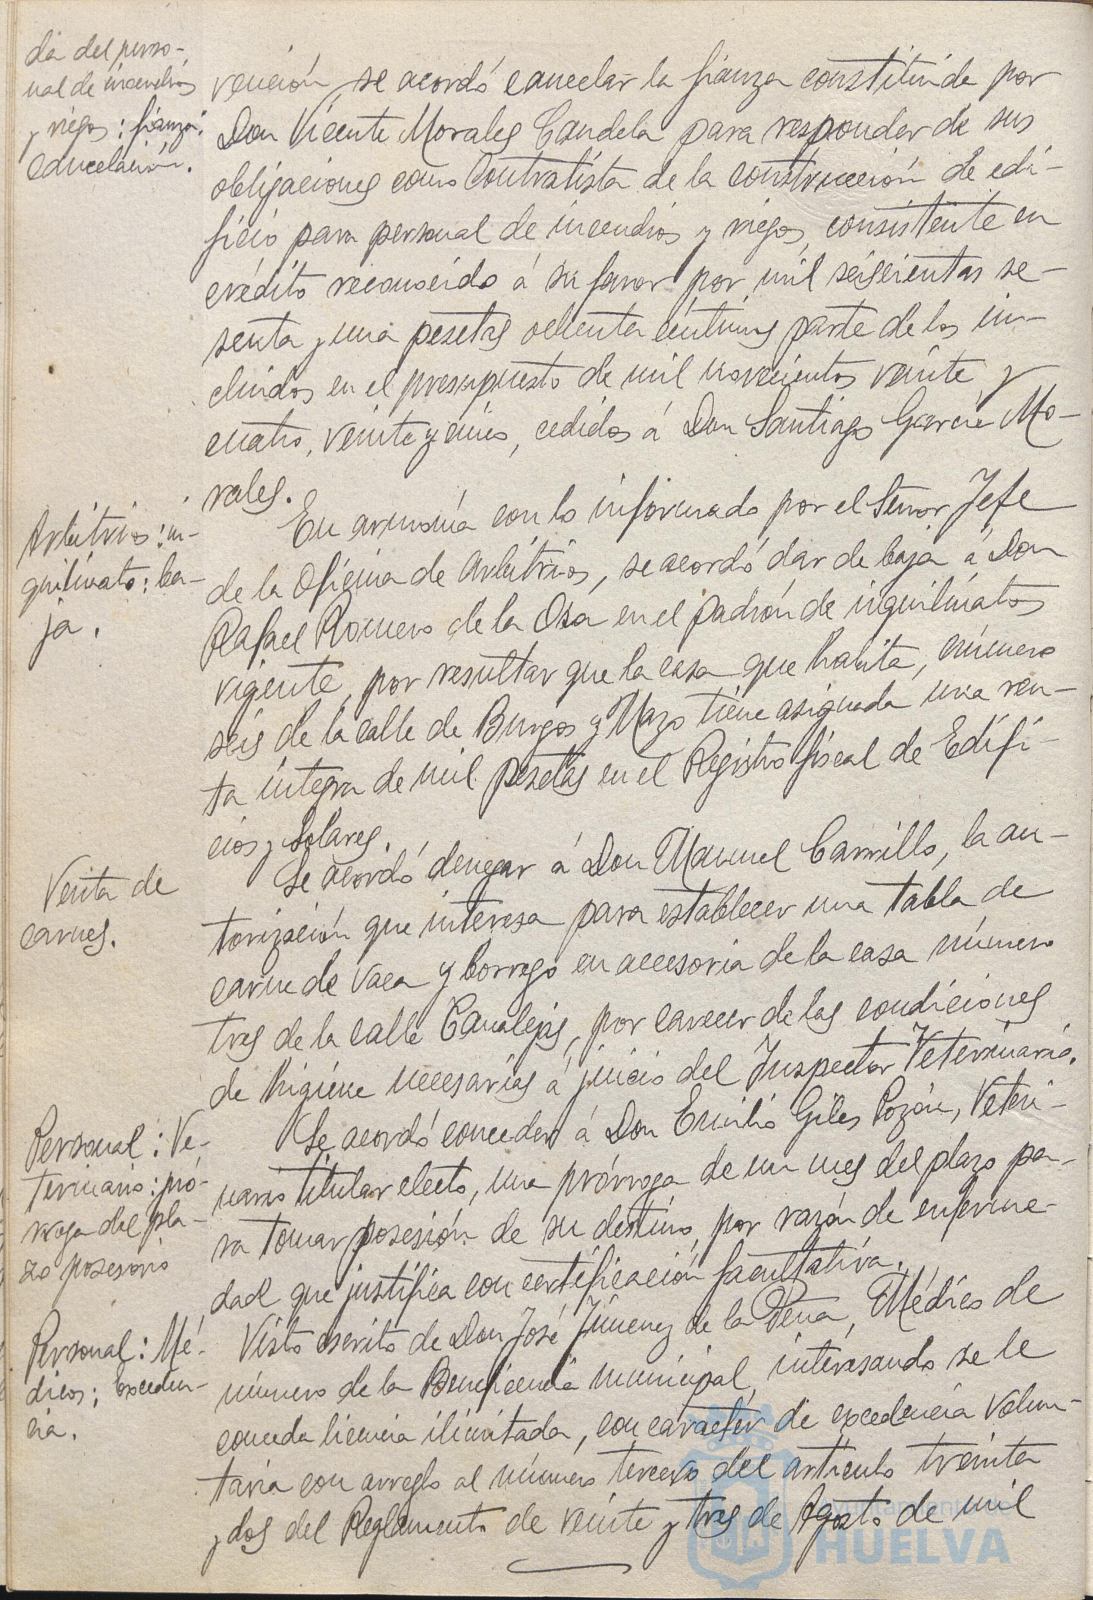 dia del perso-
nal de incendios
y riegos: fianza:
cancelación.
vención, se acordó cancelar la fianza constituida por
Don Vicente Morales Candela para responder de sus
obligaciones como Contratista de la construcción de edi-
ficio para personal de incendios y riegos, consistente en
crédito reconocido á su favor por mil seiscientas se-
senta y una pesetas ochenta céntimos parte de los in-
cluidos en el presupuesto de mil novecientos veinte y
cuatro, veinte y cinco, cedidos á Don Santiago García Mo-
rales.
Arbitrios: in-
quilinato: ba-
ja.
En armonía con lo informado por el Señor Jefe
de la Oficina de Arbitrios, se acordó dar de baja á Don
Rafael Romero de la Osa en el padrón de inquilinatos
vigente, por resultar que la casa que habita, número
seis de la calle de Burgos y Mazo tiene asignada una ren-
ta integra de mil pesetas en el Registro fiscal de Edifi-
cios y Solares.
Venta de
carnes.
Se acordó denegar á Don Manuel Carrillo, la au-
torización que interesa para establecer una tabla de
carne de vaca y borrego en accesoria de la casa número
tres de la calle Canalejas, por carecer de las condiciones
de higiene necesarias á juicio del Inspector Veterinario.
Personal: Ve-
terinario: pró-
rroga del pla-
zo posesorio
Se acordó conceder á Don Emilio Giles Pozón, Veteri-
nario titular electo, una prórroga de un mes del plazo pa-
ra tomar posesión de su destino, por razón de enferme-
dad que justifica con certificación facultativa.
Personal: Mé-
dicos: exceden-
cia.
Visto escrito de Don José Jiménez de la Peña, Médico de
número de la Beneficencia municipal, interesando se le
conceda licencia ilimitada, con carácter de excedencia volun-
taria con arreglo al número tercero del artículo treinta
y dos del Reglamento de veinte y tres de Agosto de mil
Ayuntamiento de
HUELVA